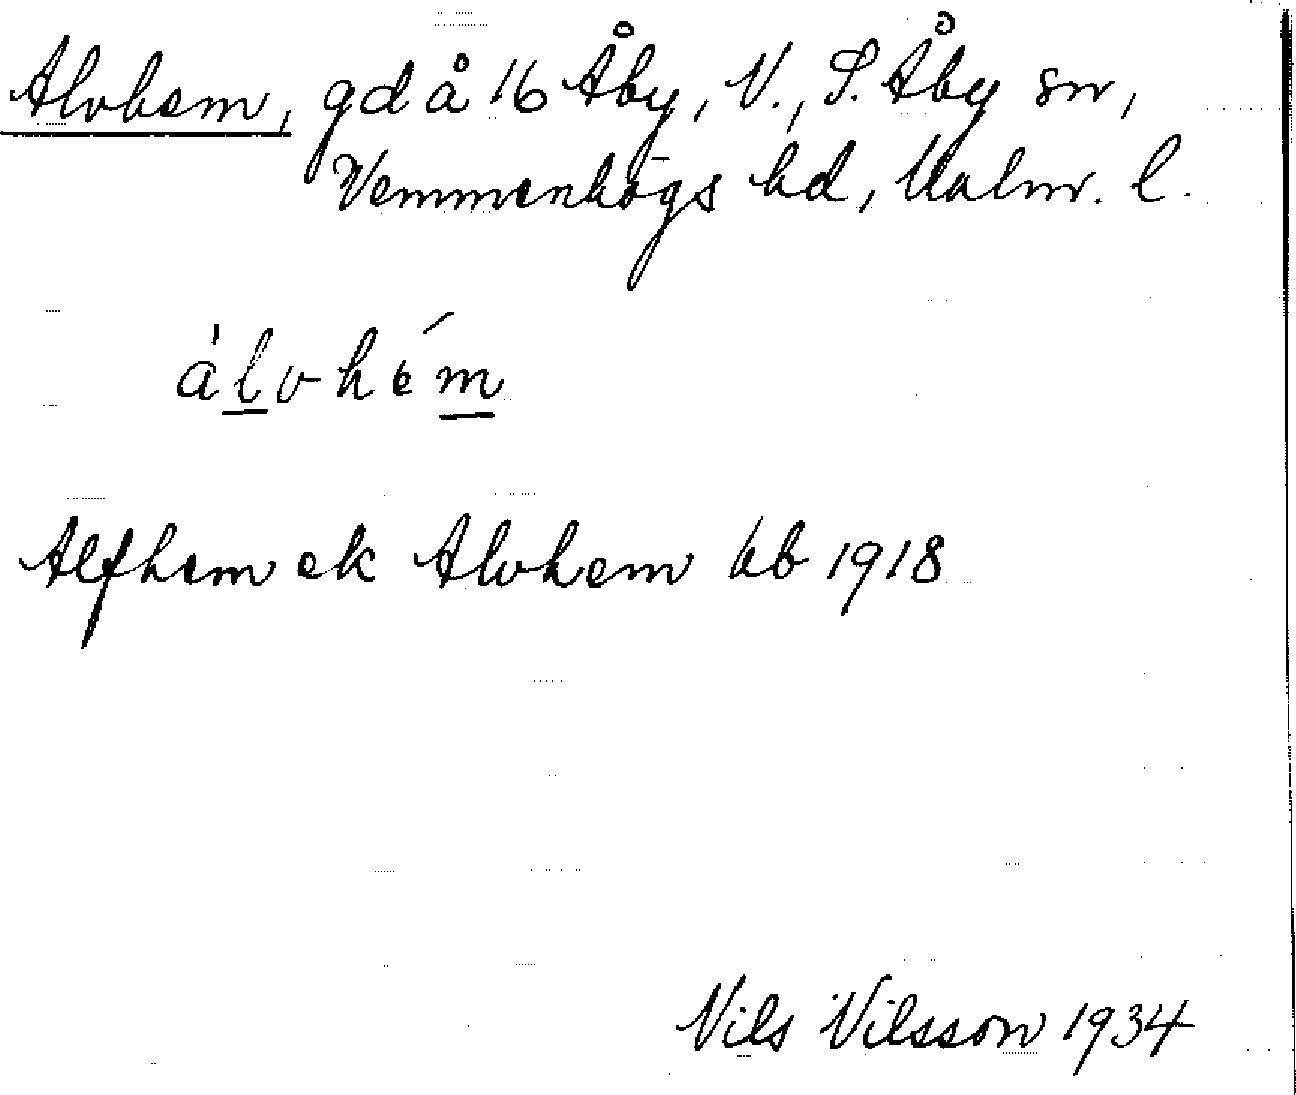 Alvhem, gd å 16 Åby, N., S. Åby sn,
Vemmenhögs hd, Malm. l.
álvhém
Alfhem ek Alvhem kb 1918
Nils Nilsson 1934